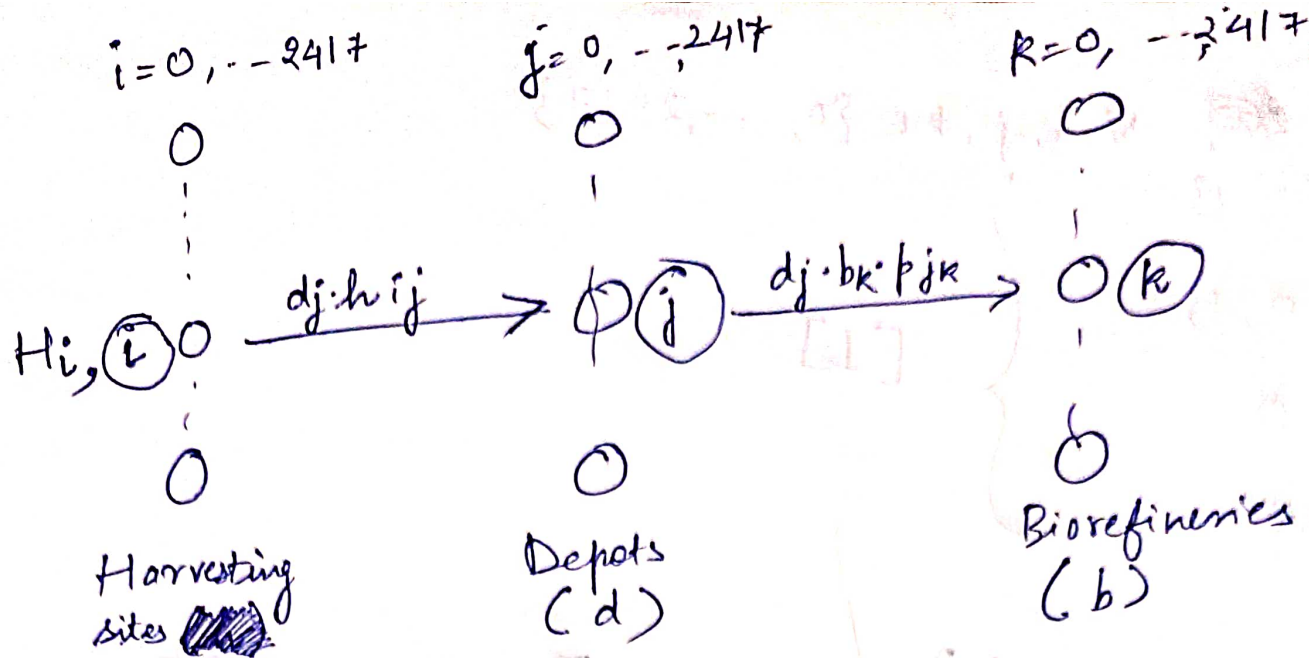 i=0, -- 2417
j=0, --,2417
k=0, --,2417
dj·hij
dj·bk·pjk
Hi, i
j
k
Harvesting
sites
Depots
(d)
Biorefineries
(b)